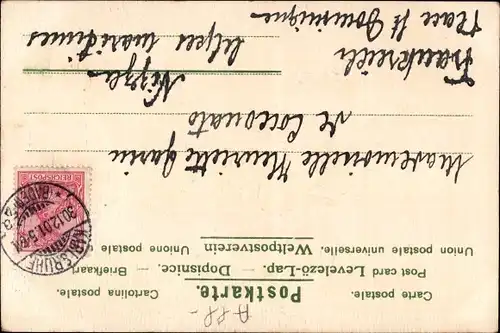 A ff -
Postkarte.
Carte postale. Cartolina postale.
Post card — Levelező-Lap. — Dopisnice. — Briefkaart
Union postale universelle. Weltpostverein Unione postale
REICHSPOST
KARLSRUHE
30.12.01.5-6
(BADEN)
Mademoiselle Henriette Garin
de Cocconato
Nizza
Alpes maritimes
Frankreich
Place St Dominique